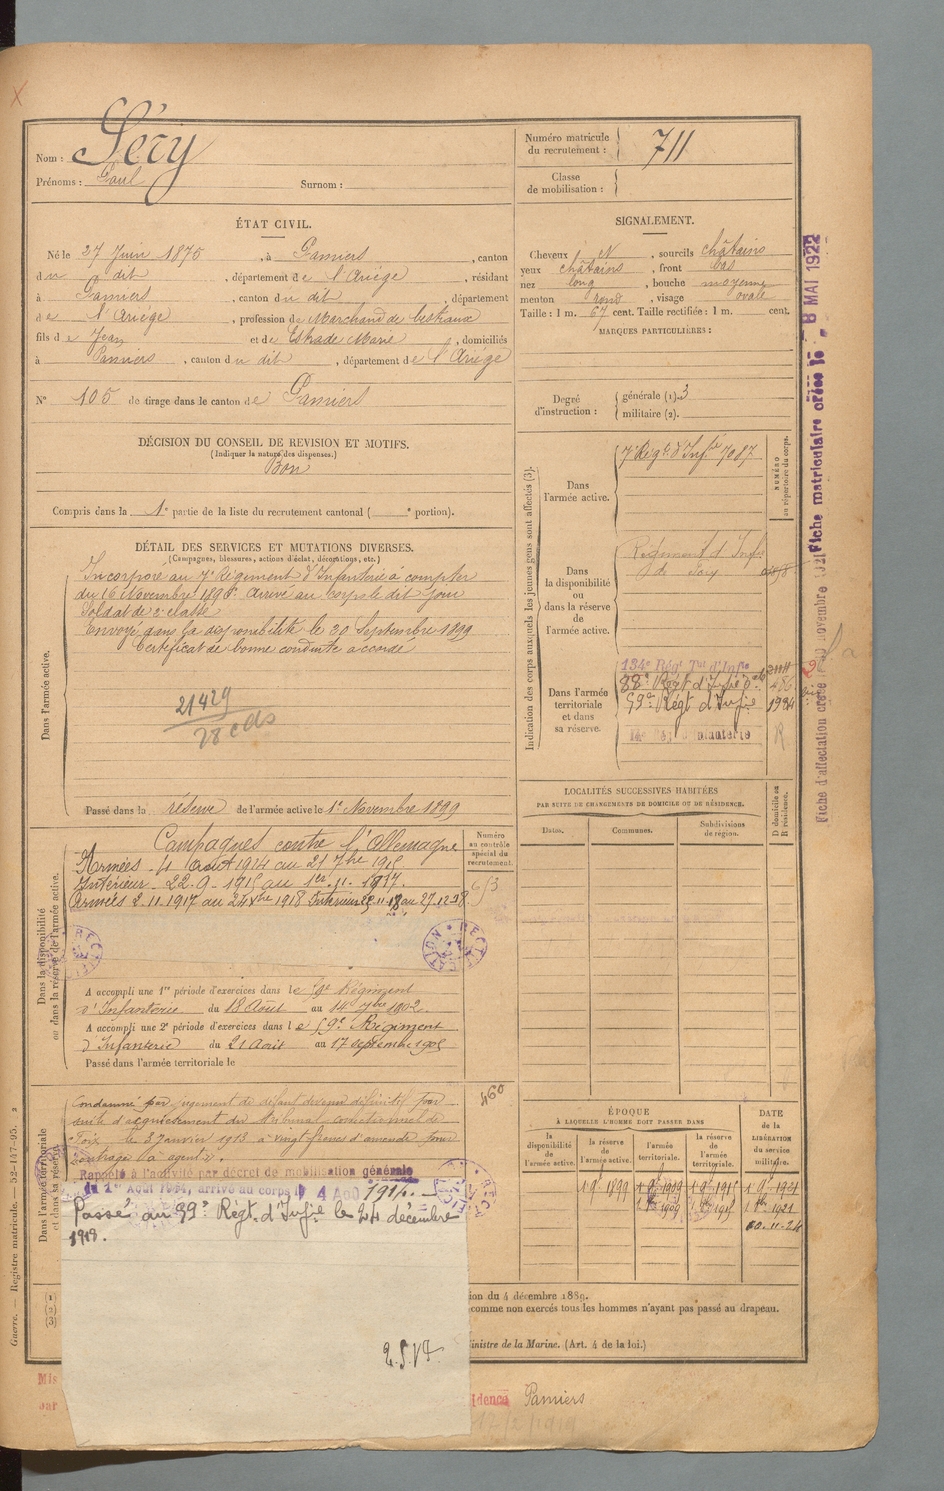 Nom : Séry
Prénoms : Paul Surnom :
Numéro matricule du recrutement : 711
Classe de mobilisation :
ÉTAT CIVIL.
Né le 27 Juin 1875, à Pamiers, canton
du dit, département de l'Ariège, résidant
à Pamiers, canton du dit, département
de l'Ariège, profession de Marchand de bestiaux
fils de Jean et de Estrade Marie, domiciliés
à Pamiers, canton du dit, département de l'Ariège
N° 105 de tirage dans le canton de Pamiers
SIGNALEMENT.
Cheveux N, sourcils châtains
yeux châtains, front bas
nez long, bouche moyenne
menton rond, visage ovale
Taille : 1 m. 67 cent. Taille rectifiée : 1 m. cent.
MARQUES PARTICULIÈRES :
Degré d'instruction : générale (1). 3
militaire (2).
DÉCISION DU CONSEIL DE REVISION ET MOTIFS.
(Indiquer la nature des dispenses.)
Bon
Compris dans la 1e partie de la liste du recrutement cantonal ( e portion).
DÉTAIL DES SERVICES ET MUTATIONS DIVERSES.
(Campagnes, blessures, actions d'éclat, décorations, etc.)
Dans l'armée active.
Incorporé au 7e Régiment d'Infanterie à compter
du 16 Novembre 1896. Arrivé au corps le dit jour
Soldat de 2e classe
Envoyé dans la disponibilité le 30 Septembre 1899
Certificat de bonne conduite accordé
21429
Passé dans la réserve de l'armée active le 1er Novembre 1899
Indication des corps auxquels les jeunes gens sont affectés (3).
NUMÉRO au répertoire du corps.
Dans l'armée active.
7e Régt d'Infie 7087
Dans la disponibilité ou dans la réserve de l'armée active.
Régiment d'Infie
de Foix
Dans l'armée territoriale et dans sa réserve.
134e Régt Tal d'Infie
88e Régt d'Infie
59e Régt d'Infie
LOCALITÉS SUCCESSIVES HABITÉES
PAR SUITE DE CHANGEMENTS DE DOMICILE OU DE RÉSIDENCE.
Dates. Communes. Subdivisions de région.
D domicile ou R résidence.
Dans la disponibilité ou dans la réserve de l'armée active.
Numéro au contrôle spécial du recrutement.
Campagnes contre l'Allemagne
Armées - 4 Août 1914 au 21 7bre 1915
Intérieur - 22.9.1915 au 1er.11.1917.
Armées 2.11.1917 au 24 Xbre 1918
A accompli une 1re période d'exercices dans le 59e Régiment
d'Infanterie du 18 Août au 14 7bre 1902.
A accompli une 2e période d'exercices dans le 59e Régiment
d'Infanterie du 21 Août au 17 septembre 1905
Passé dans l'armée territoriale le
460
Dans l'armée territoriale et dans sa réserve
Condamné par jugement de défaut devenu définitif par
suite d'acquiescement du tribunal correctionnel de
Foix le 3 Janvier 1913 à vingt francs d'amende pour
outrage à agent.
Rappelé à l'activité par décret de mobilisation générale
du 1er Août 1914, arrivé au corps le 4 Août 1914.
Passé au 99e Régt. d'Infie le 24 décembre
1918.
ÉPOQUE
À LAQUELLE L'HOMME DOIT PASSER DANS
la disponibilité de l'armée active.
la réserve de l'armée active.
l'armée territoriale.
la réserve de l'armée territoriale.
DATE de la LIBÉRATION du service militaire.
(1)
(2)
(3)
ion du 4 décembre 1889.
comme non exercés tous les hommes n'ayant pas passé au drapeau.
inistre de la Marine. (Art. 4 de la loi.)
idence Pamiers
Guerre. — Registre matricule. — 52-147-95. 2
Fiche matriculaire créée le 8 MAI 1922